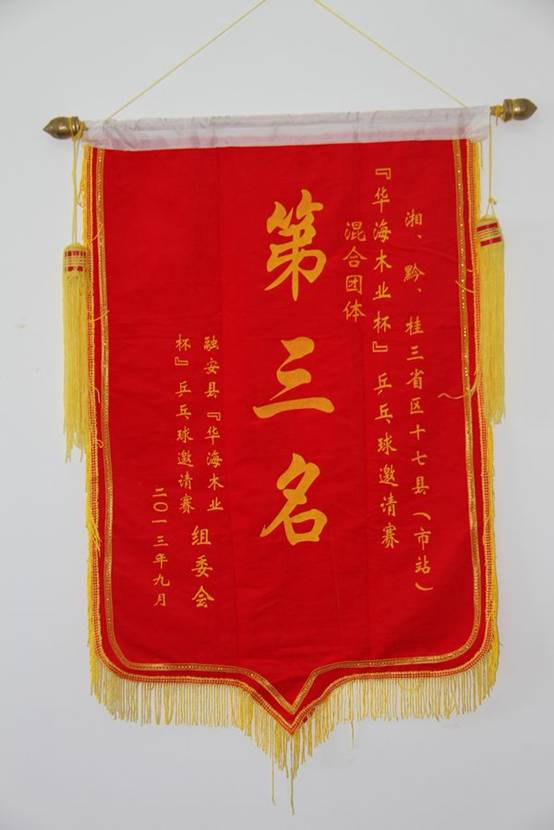 湘、黔、桂三省区十七县(市站)
『华海木业杯』乒乓球邀请赛
混合团体
第三名
融安县『华海木业
杯』乒乓球邀请赛
组委会
二〇一三年九月